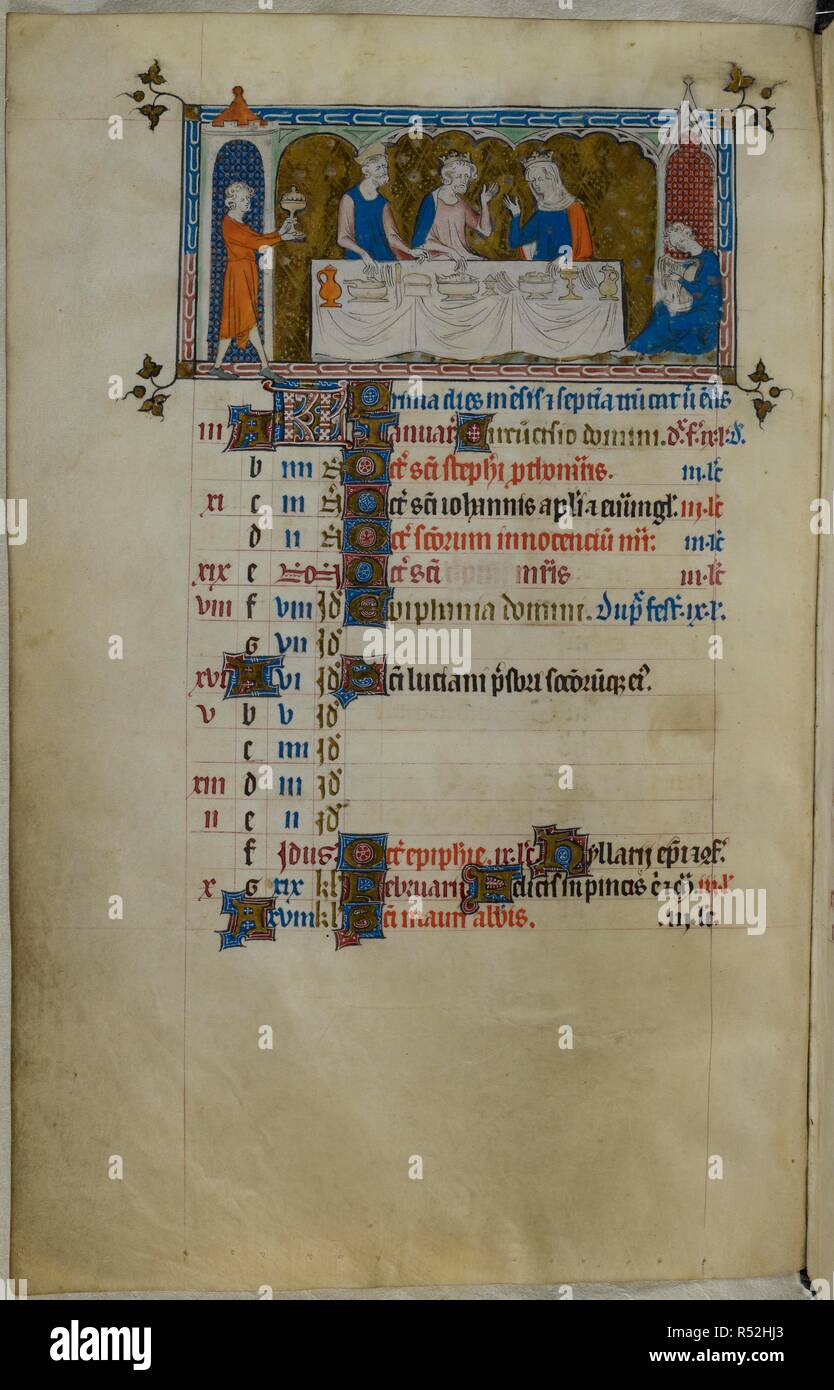 KL Prima dies mēsis ⁊ septīa trūcat ū ēsis
iii A Ianuar̄ Circūcisio domini. dx̄. fx̄. ix. l.
b iiii N Oct̄ sc̄i steph̄i ꝓthom̄ris. iii. lc̄
xi c iii N Oct̄ sc̄i ioh̄annis apl̄i ⁊ euūngl̄. iii. lc̄
d ii N Oct̄ sc̄orum innocenciū mr̄. iii. lc̄
xix e Oct̄ sc̄i mr̄is iii. lc̄
viii f viii Id̄ Epiphania domini. Dup̄ fest̄. ix. l.
g vii Id̄
xvi A vi Id̄ Sc̄i luciani p̄sb̄ri socōrūq; ei᷒.
v b v Id̄
c iiii Id̄
xiii d iii Id̄
ii e ii Id̄
f Idus. Oct̄ epiph̄ie. ix. lc̄ Hyllarij ep̄i ⁊
x g xix kl Februarij Felicis in pincis iii. l
A xviii kl Sc̄i mauri abb̄is. iii. lc̄.
alamy
Image ID: R52HJ3
www.alamy.com